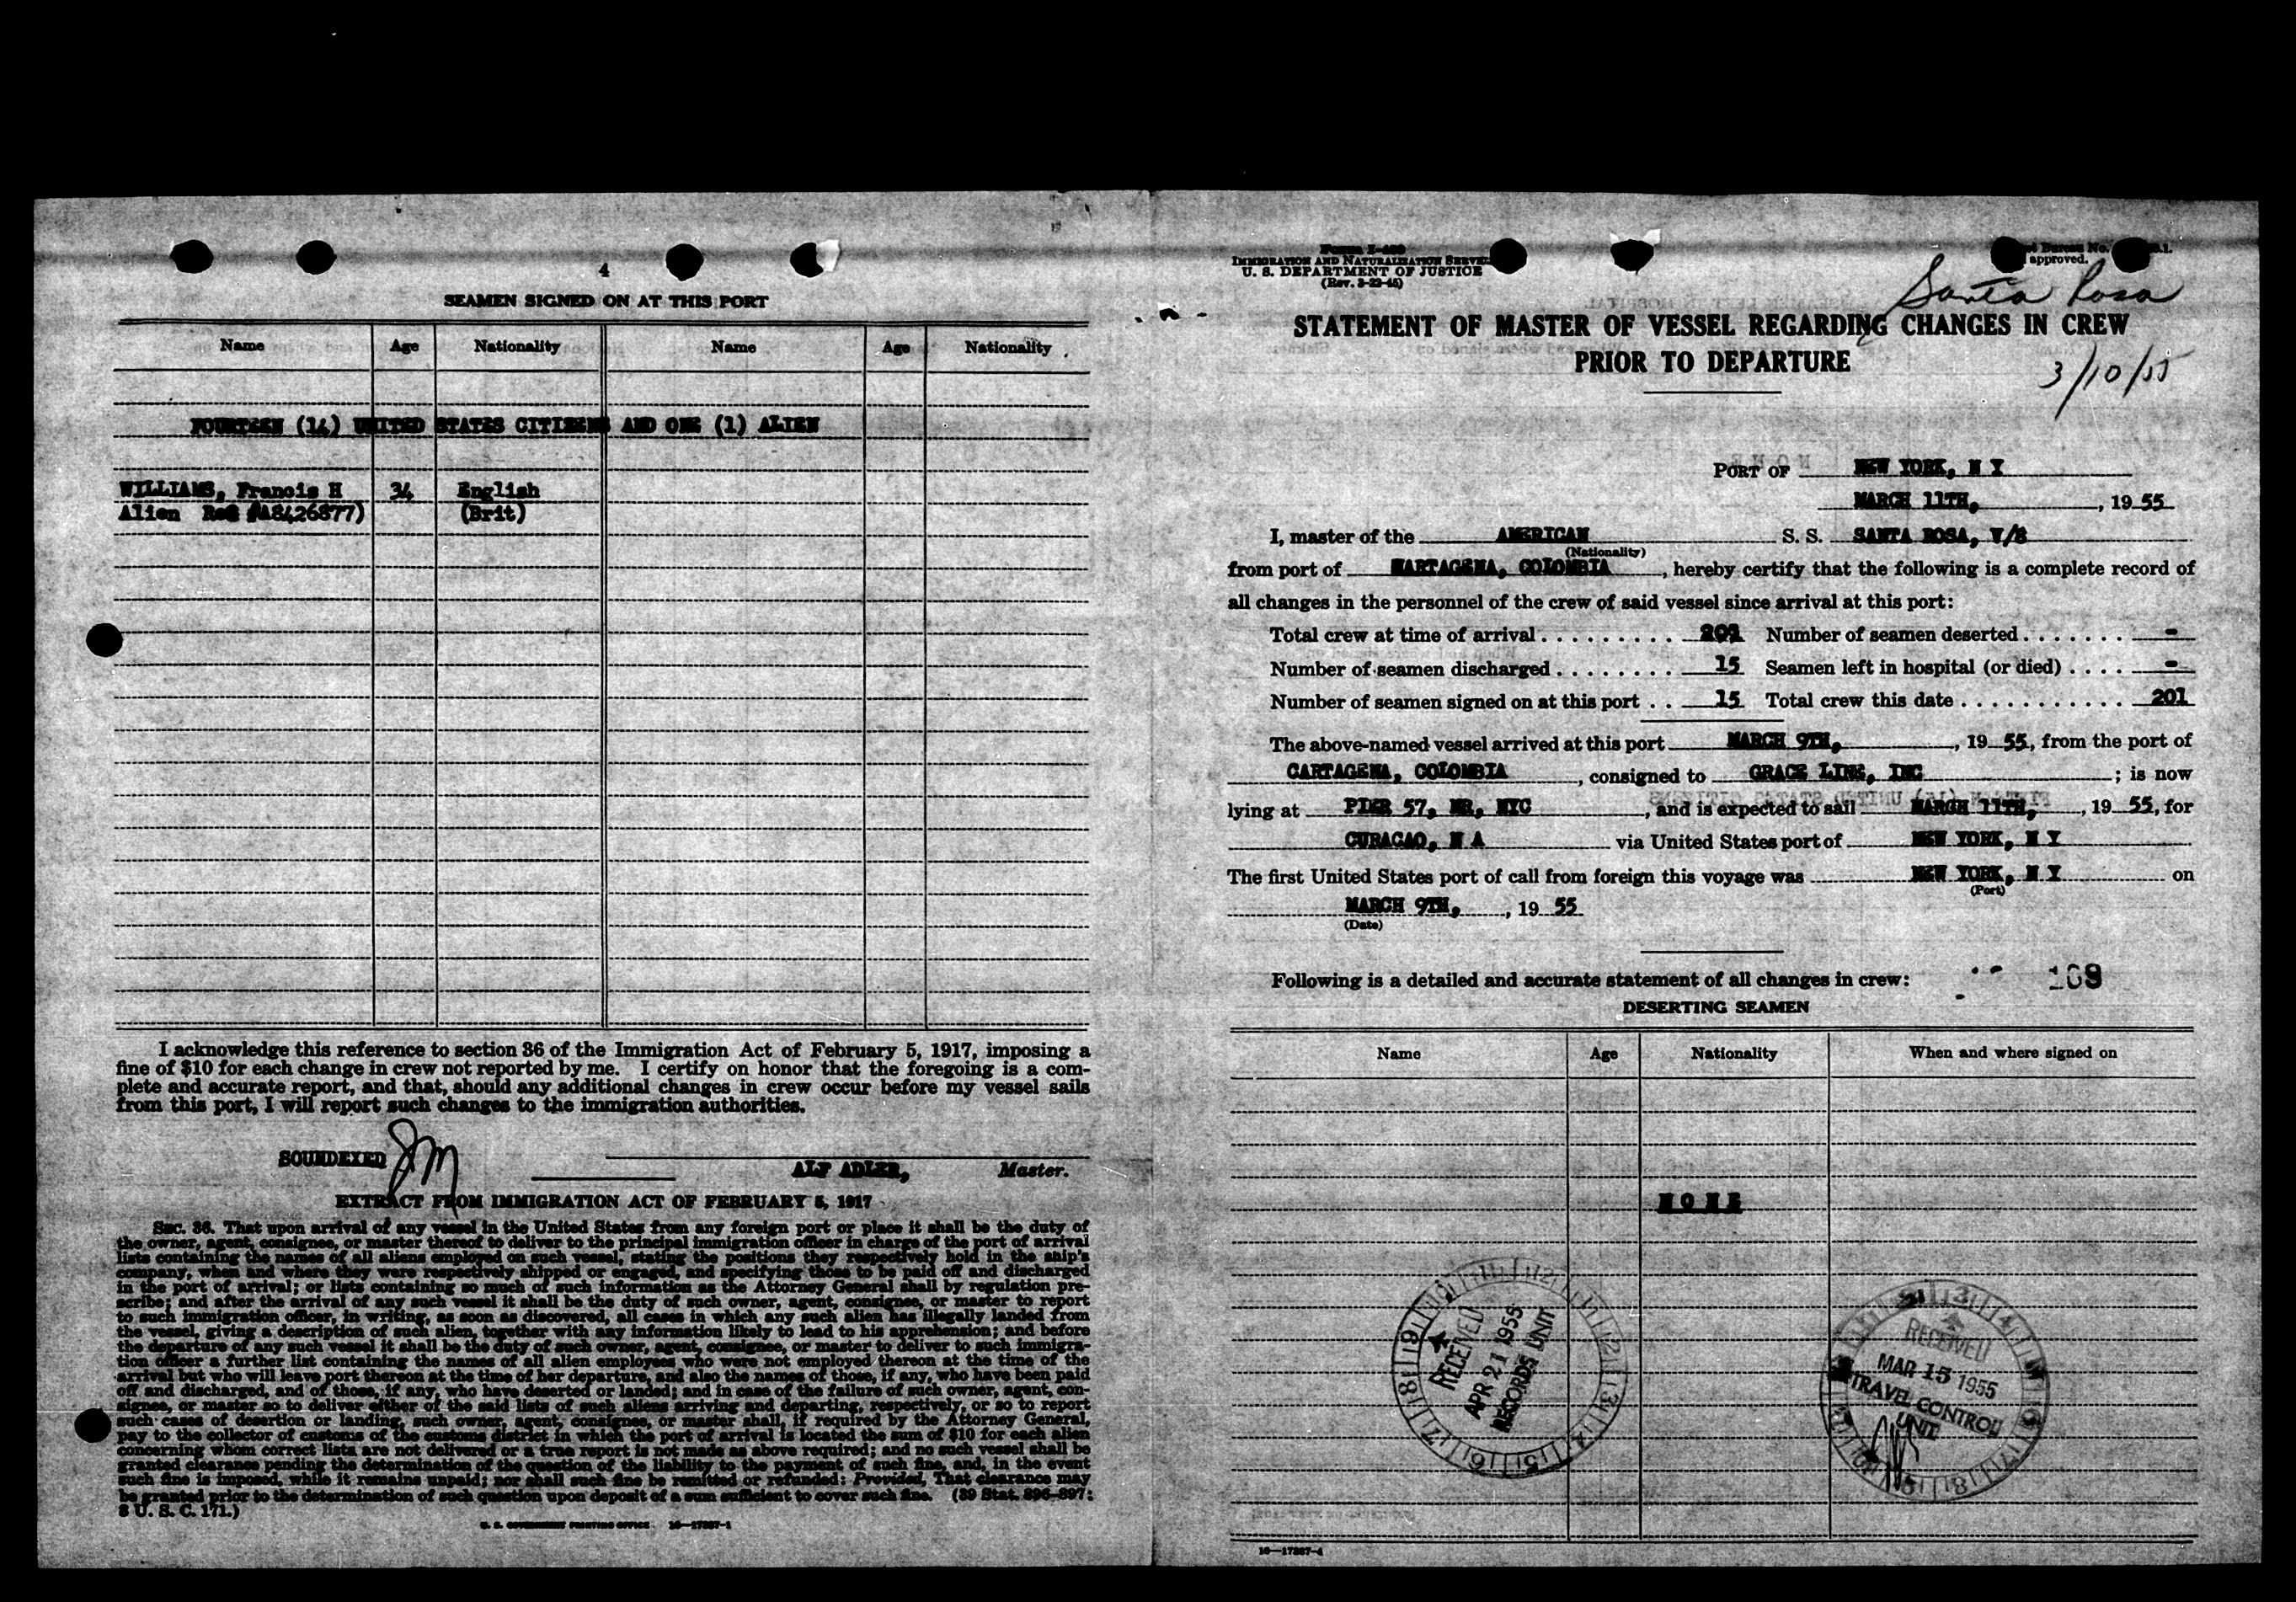 4
SEAMEN SIGNED ON AT THIS PORT
Name Age Nationality Name Age Nationality
FOURTEEN (14) UNITED STATES CITIZENS AND ONE (1) ALIEN
WILLIAMS, Francis H 34 English
Alien Reg #A8426877) (Brit)
I acknowledge this reference to section 36 of the Immigration Act of February 5, 1917, imposing a
fine of $10 for each change in crew not reported by me. I certify on honor that the foregoing is a com-
plete and accurate report, and that, should any additional changes in crew occur before my vessel sails
from this port, I will report such changes to the immigration authorities.
SOUNDEXED
ALF ADLER, Master.
EXTRACT FROM IMMIGRATION ACT OF FEBRUARY 5, 1917
Sec. 36. That upon arrival of any vessel in the United States from any foreign port or place it shall be the duty of
the owner, agent, consignee, or master thereof to deliver to the principal immigration officer in charge of the port of arrival
lists containing the names of all aliens employed on such vessel, stating the positions they respectively hold in the ship's
company, when and where they were respectively shipped or engaged, and specifying those to be paid off and discharged
in the port of arrival; or lists containing so much of such information as the Attorney General shall by regulation pre-
scribe; and after the arrival of any such vessel it shall be the duty of such owner, agent, consignee, or master to report
to such immigration officer, in writing, as soon as discovered, all cases in which any such alien has illegally landed from
the vessel, giving a description of such alien, together with any information likely to lead to his apprehension; and before
the departure of any such vessel it shall be the duty of such owner, agent, consignee, or master to deliver to such immigra-
tion officer a further list containing the names of all alien employees who were not employed thereon at the time of the
arrival but who will leave port thereon at the time of her departure, and also the names of those, if any, who have been paid
off and discharged, and of those, if any, who have deserted or landed; and in case of the failure of such owner, agent, con-
signee, or master so to deliver either of the said lists of such aliens arriving and departing, respectively, or so to report
such cases of desertion or landing, such owner, agent, consignee, or master shall, if required by the Attorney General,
pay to the collector of customs of the customs district in which the port of arrival is located the sum of $10 for each alien
concerning whom correct lists are not delivered or a true report is not made as above required; and no such vessel shall be
granted clearance pending the determination of the question of the liability to the payment of such fine, and, in the event
such fine is imposed, while it remains unpaid; nor shall such fine be remitted or refunded: Provided, That clearance may
be granted prior to the determination of such question upon deposit of a sum sufficient to cover such fine. (39 Stat. 896-897;
8 U. S. C. 171.)
U. S. GOVERNMENT PRINTING OFFICE 16—17267-1
IMMIGRATION AND NATURALIZATION SERVICE
U. S. DEPARTMENT OF JUSTICE
(Rev. 3-22-45)
Bureau No.
approved.
Santa Rosa
STATEMENT OF MASTER OF VESSEL REGARDING CHANGES IN CREW
PRIOR TO DEPARTURE
3/10/55
PORT OF NEW YORK, N Y
MARCH 11TH, , 19 55
I, master of the AMERICAN S. S. SANTA ROSA, V/8
(Nationality)
from port of KARTAGENA, COLOMBIA , hereby certify that the following is a complete record of
all changes in the personnel of the crew of said vessel since arrival at this port:
Total crew at time of arrival . . . . . . . . . 201 Number of seamen deserted . . . . . . . -
Number of seamen discharged . . . . . . . . 15 Seamen left in hospital (or died) . . . . -
Number of seamen signed on at this port . . 15 Total crew this date . . . . . . . . . . . 201
The above-named vessel arrived at this port MARCH 9TH, , 19 55, from the port of
CARTAGENA, COLOMBIA , consigned to GRACE LINE, INC ; is now
lying at PIER 57, NR, NYC , and is expected to sail MARCH 11TH, , 19 55, for
CURACAO, N A via United States port of NEW YORK, N Y
The first United States port of call from foreign this voyage was NEW YORK, N Y on
(Port)
MARCH 9TH, , 19 55
(Date)
Following is a detailed and accurate statement of all changes in crew:
169
DESERTING SEAMEN
Name Age Nationality When and where signed on
N O N E
RECEIVED
APR 21 1955
RECORDS UNIT
RECEIVED
MAR 15 1955
TRAVEL CONTROL
UNIT
16—17267-4